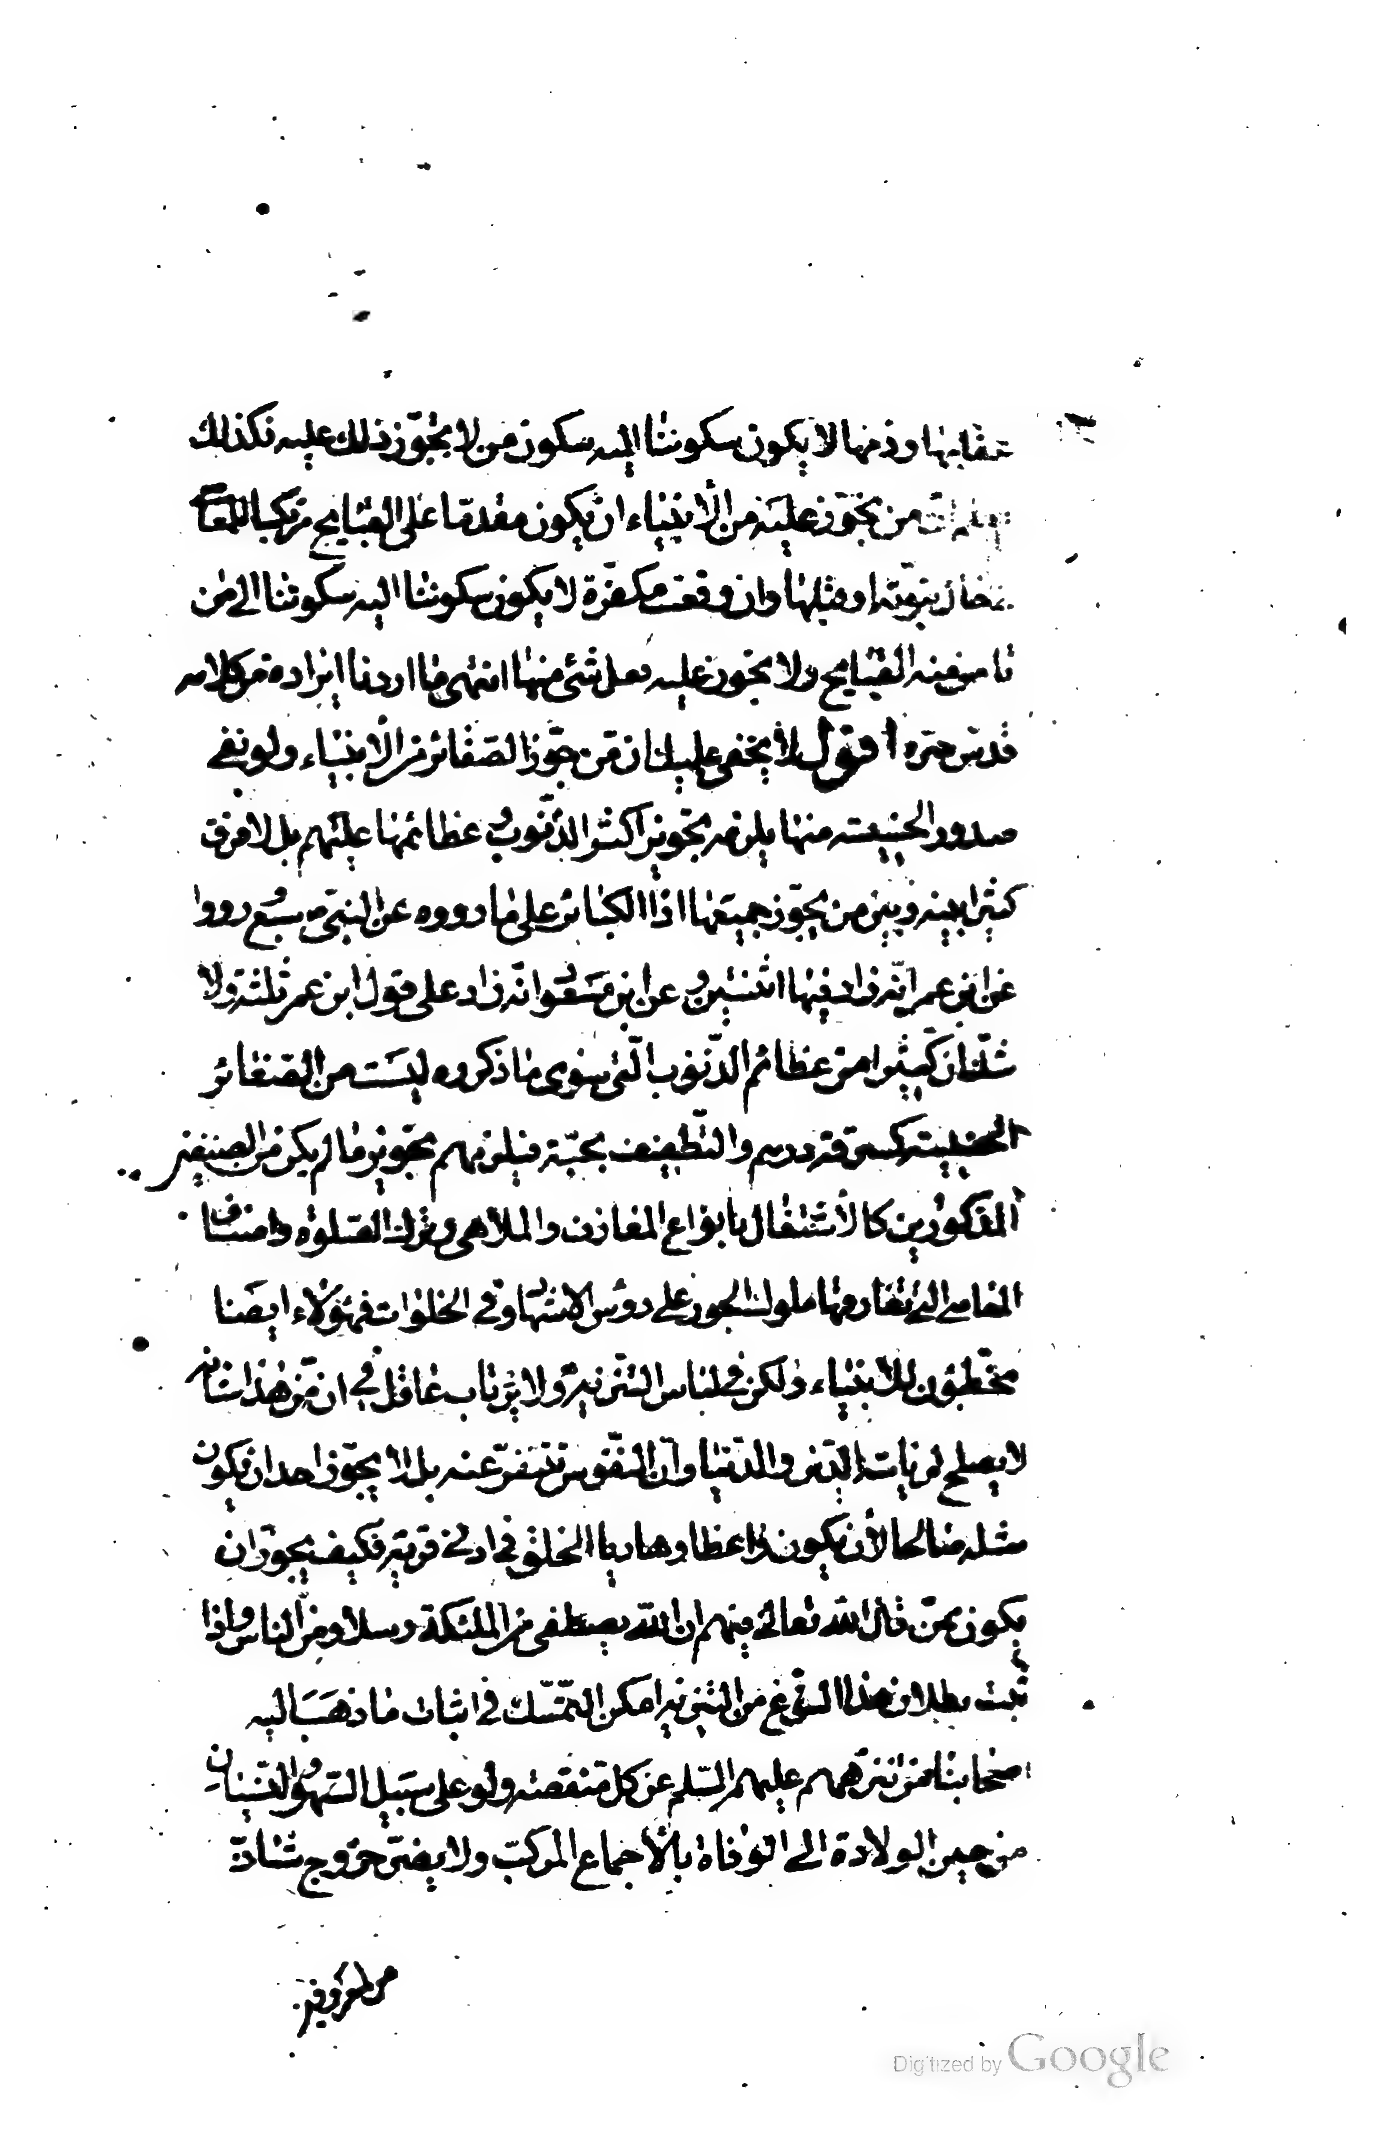 عقابها وذمها لا يكون سكوننا اليه سكون من لا يجوّز ذلك عليه فكذلك
من يجوّز عليه من الأنبياء ان يكون مقدما على القبايح مرتكبا للمعاصي
حال نبوّته او قبلها وان وقعت مكفرة لا يكون سكوننا اليه سكوننا الى من
نامن منه القبايح ولا يجوز عليه فعل شئ منها انتهى ما اردنا ايراده من كلامه
قدس سره اقول لا يخفى عليك ان من جوّز الصغائر من الأنبياء ولو نفى
صدور الخسيسة منها يلزمه تجويز اكثر الذنوب و عظائمها عليهم بل لا فرق
كثيرا بينه وبين من يجوّز جميعها اذ الكبائر على ما رووه عن النبي ص سبع رووا
عن ابن عمر انّه زاد فيها اثنتين و عن ابن مسعود انّه زاد على قول ابن عمر ثلثة ولا
شك ان كثيرا من عظائم الذّنوب الّتى سوى ما ذكروه ليست من الصّغائر
الخسيسة كسرقة درهم والتطفيف بحبّة فيلزمهم تجويز ما لم يكن من الصنفين
المذكورين كالأشتغال بانواع المعازف والملاهى وترك الصلوة واصناف
المعاصى التى تقارفها ملوك الجور على رؤس الاشهاد وفى الخلوات فهؤلاء ايضا
مخطّئون للأنبياء ولكن فى لباس التنزيه ولا يرتاب عاقل في ان من هذا شانه
لا يصلح لرياسة الدّين والدّنيا وانّ النفوس تتنفّر عنه بل لا يجوّز احد ان يكون
مثله صالحا لأن يكون واعظا وهاديا للخلق فى ادنى قرية فكيف يجوز ان
يكون ممّن قال الله تعالى فيهم ان الله يصطفى من الملئكة رسلا ومن الناس واذا
ثبت بطلان هذا النوع من التنزيه امكن التمسّك فى اثبات ما ذهب اليه
اصحابنا من تنزههم عليهم السّلم عن كل منقصة ولو على سبيل السّهو والنّسيان
من حين الولادة الى الوفاة بالأجماع المركّب ولا يضر خروج شاذّ
من المعروفين
Digitized by Google